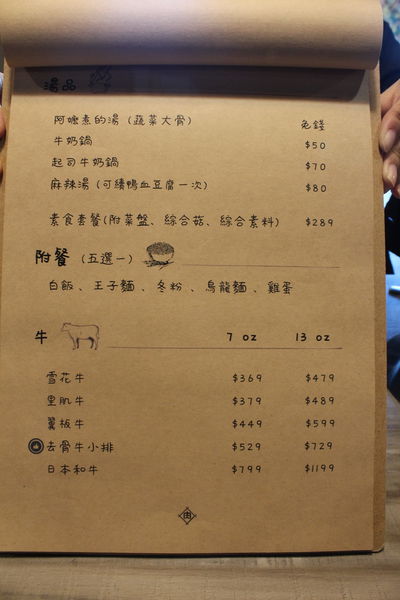 湯品
阿嬤煮的湯（蔬菜大骨） 免錢
牛奶鍋 $50
起司牛奶鍋 $70
麻辣湯（可續鴨血豆腐一次） $80
素食套餐(附菜盤、綜合菇、綜合素料) $289
附餐（五選一）
白飯、王子麵、冬粉、烏龍麵、雞蛋
牛 7 oz 13 oz
雪花牛 $369 $479
里肌牛 $379 $489
翼板牛 $449 $599
去骨牛小排 $529 $729
日本和牛 $799 $1199
肉